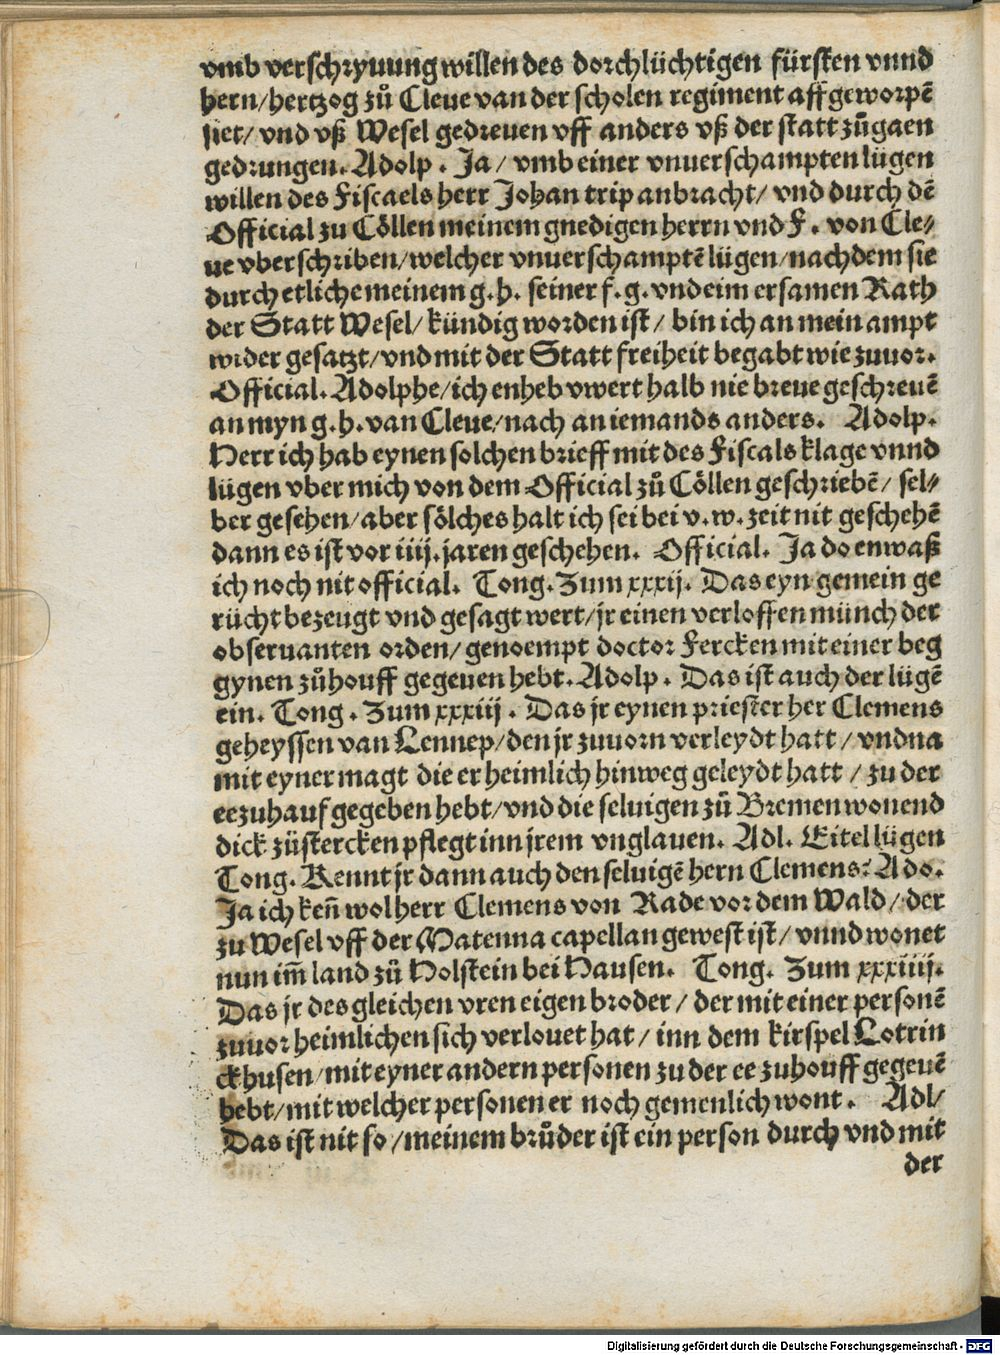 vmb verschryuung willen des dorchlüchtigen fürsten vnnd
hern/hertzog zů Cleue van der scholen regiment affgeworpē
siet/ vnd vß Wesel gedreuen vff anders vß der statt zůgaen
gedrungen. Adolp. Ja/ vmb einer vnuerschampten lügen
willen des Fiscaels herr Johan trip anbracht/ vnd durch dē
Official zu Cöllen meinem gnedigen herrn vnd F. von Cle⸗
ue vberschriben/welcher vnuerschamptē lügen/nachdem sie
durch etliche meinem g.h. seiner f.g. vnd eim ersamen Rath
der Statt Wesel/ kündig worden ist/ bin ich an mein ampt
wider gesatzt/vnd mit der Statt freiheit begabt wie zuuor.
Official. Adolphe/ich enheb vwert halb nie breue geschreuē
an myn g.h. van Cleue/nach an iemands anders. Adolp.
Herr ich hab eynen solchen brieff mit des Fiscals klage vnnd
lügen vber mich von dem Official zů Cöllen geschriebē/ sel⸗
ber gesehen/aber sölches halt ich sei bei v.w. zeit nit geschehē
dann es ist vor iiij. jaren geschehen. Official. Ja do enwaß
ich noch nit official. Tong. Zum xxxij. Das eyn gemein ge
rücht bezeugt vnd gesagt wert/jr einen verloffen münch der
obseruanten orden/ genoempt doctor Fercken mit einer beg
gynen zůhouff gegeuen hebt. Adolp. Das ist auch der lügē
ein. Tong. Zum xxxiij. Das jr eynen priester her Clemens
geheyssen van Lennep/den jr zuuorn verleydt hatt/ vnd na
mit eyner magt die er heimlich hinweg geleydt hatt/ zu der
ee zuhauf gegeben hebt/vnd die seluigen zů Bremen wonend
dick züstercken pflegt inn jrem vnglauen. Adl. Eitel lügen
Tong. Kennt jr dann auch den seluigē hern Clemens? Ado.
Ja ich keñ wol herr Clemens von Rade vor dem Wald/ der
zu Wesel vff der Matenna capellan gewest ist/ vnnd wonet
nun im̄ land zů Holstein bei Hausen. Tong. Zum xxxiiij.
Das jr des gleichen vren eigen broder/ der mit einer personē
zuuor heimlichen sich verlouet hat/ inn dem kirspel Lotrin
ckhusen/mit eyner andern personen zu der ee zuhouff gegeuē
hebt/mit welcher personen er noch gemenlich wont. Adl/
Das ist nit so/meinem brůder ist ein person durch vnd mit
der
Digitalisierung gefördert durch die Deutsche Forschungsgemeinschaft - DFG